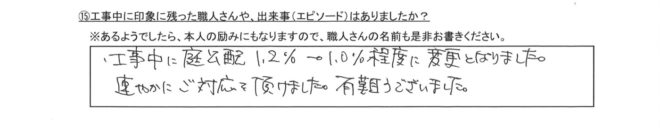 ⑮工事中に印象に残った職人さんや、出来事(エピソード)はありましたか?
※あるようでしたら、本人の励みにもなりますので、職人さんの名前も是非お書きください。
・工事中に庭勾配1.2%→1.0%程度に変更となりました。
速やかにご対応を頂けました。有難うございました。